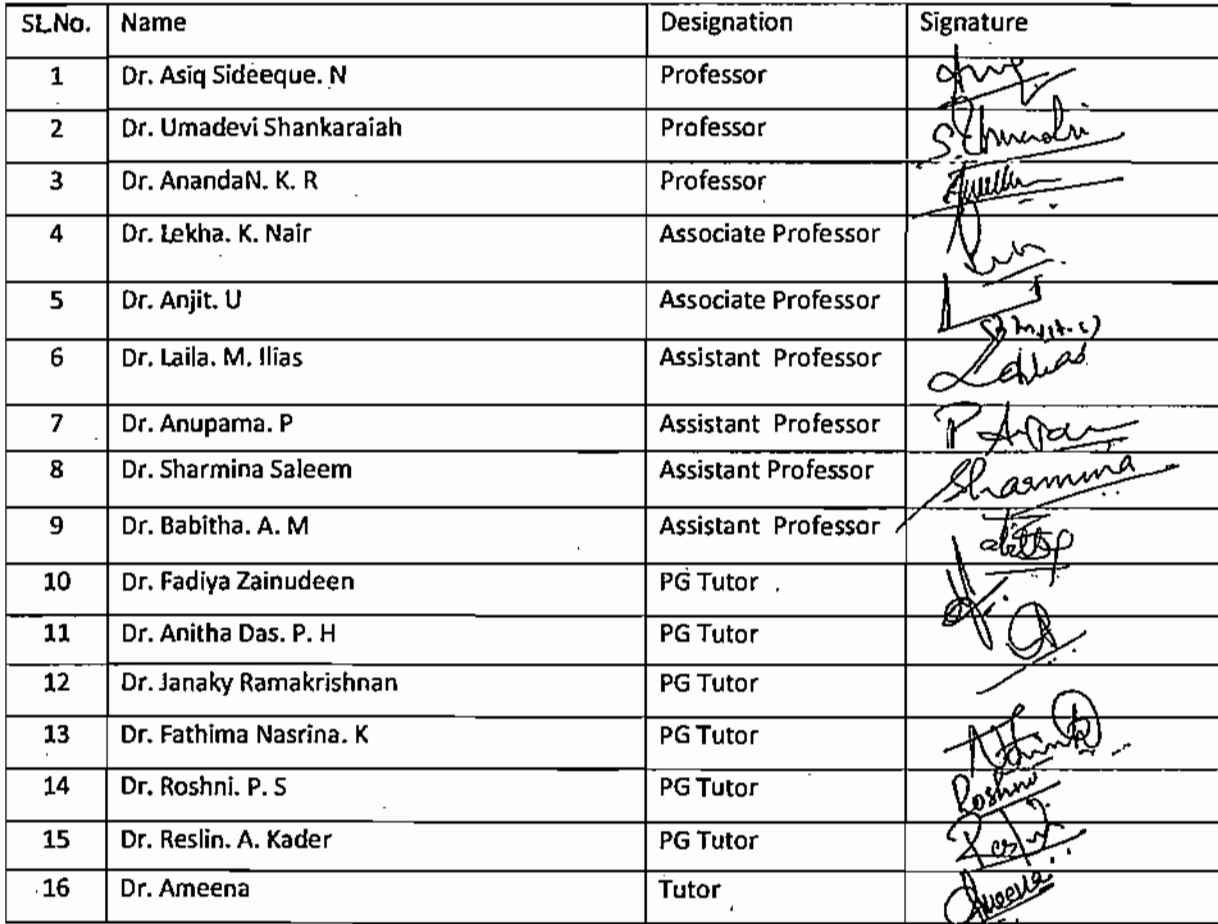 SL.No. Name Designation Signature
1 Dr. Asiq Sideeque. N Professor
2 Dr. Umadevi Shankaraiah Professor
3 Dr. AnandaN. K. R Professor
4 Dr. Lekha. K. Nair Associate Professor
5 Dr. Anjit. U Associate Professor
6 Dr. Laila. M. Ilias Assistant Professor
7 Dr. Anupama. P Assistant Professor
8 Dr. Sharmina Saleem Assistant Professor Sharmina
9 Dr. Babitha. A. M Assistant Professor
10 Dr. Fadiya Zainudeen PG Tutor
11 Dr. Anitha Das. P. H PG Tutor
12 Dr. Janaky Ramakrishnan PG Tutor
13 Dr. Fathima Nasrina. K PG Tutor
14 Dr. Roshni. P. S PG Tutor Roshni
15 Dr. Reslin. A. Kader PG Tutor
16 Dr. Ameena Tutor Ameena